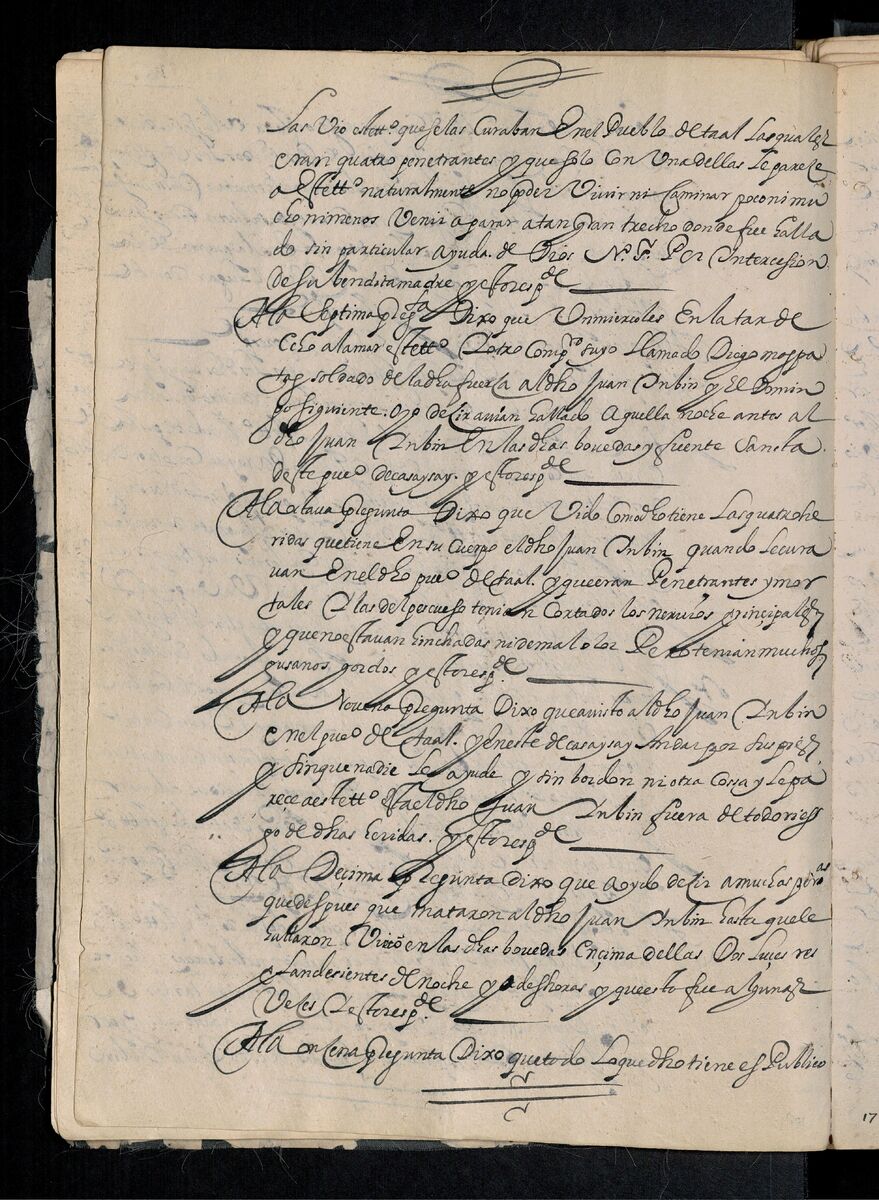 las Vio este ttº que se las Curaban En el Pueblo de taal las quales
eran quatro penetrantes y que solo Con Una dellas le pareçe
a Este ttº naturalmente no poder Vivir ni Caminar poco ni mu
cho ni menos Venir a parar a tan gran trecho donde fue halla
do sin particular ayuda de Dios Nº Sr Por Intercesion
de su bendita madre y esto respde
A la Septima pregta Dixo que Un miercoles En la tarde
hecho a la mar este ttº Y otro Compro suyo llamado Diego
soldado de la dha fuerça al dho Juan Inbin y El Domin
go siguiente oyo desir avian hallado aquella noche antes al
dho Juan Inbin En las dhas bovedas y fuente Sancta
deste pueº de casaysay y esto respde
A la octava pregunta Dixo que Vido Como dho tiene las quatro he
ridas que tiene En su Cuerpo el dho Juan Inbin quando le cura
van En el dho pueº de taal y que eran Penetrantes y mor
tales Y las del pescueso tenian Cortados los nervios principales
y que no estavan hinchadas ni de mal olor Pero tenian muchos
gusanos gordos y esto respde
A la Novena pregunta Dixo que a visto al dho Juan Inbin
en el pueº de taal y en este de casaysay Andar por sus pies
y sin que nadie le ayude y sin bordon ni otra Cossa y le pa
reçe a este ttº Esta el dho Juan Inbin fuera de todo ries
go de dhas heridas y esto respde
A la Deçima pregunta Dixo que a oydo desir a muchas psonas
que despues que mataron al dho Juan Inbin hasta que le
hallaron Vivo en las dhas bovedas ençima dellas Dos luses res
plandesientes de noche y a deshoras y que esto fue algunas
Veses Y esto respde
A la onsena pregunta Dixo que todo lo que dho tiene es Publico
17